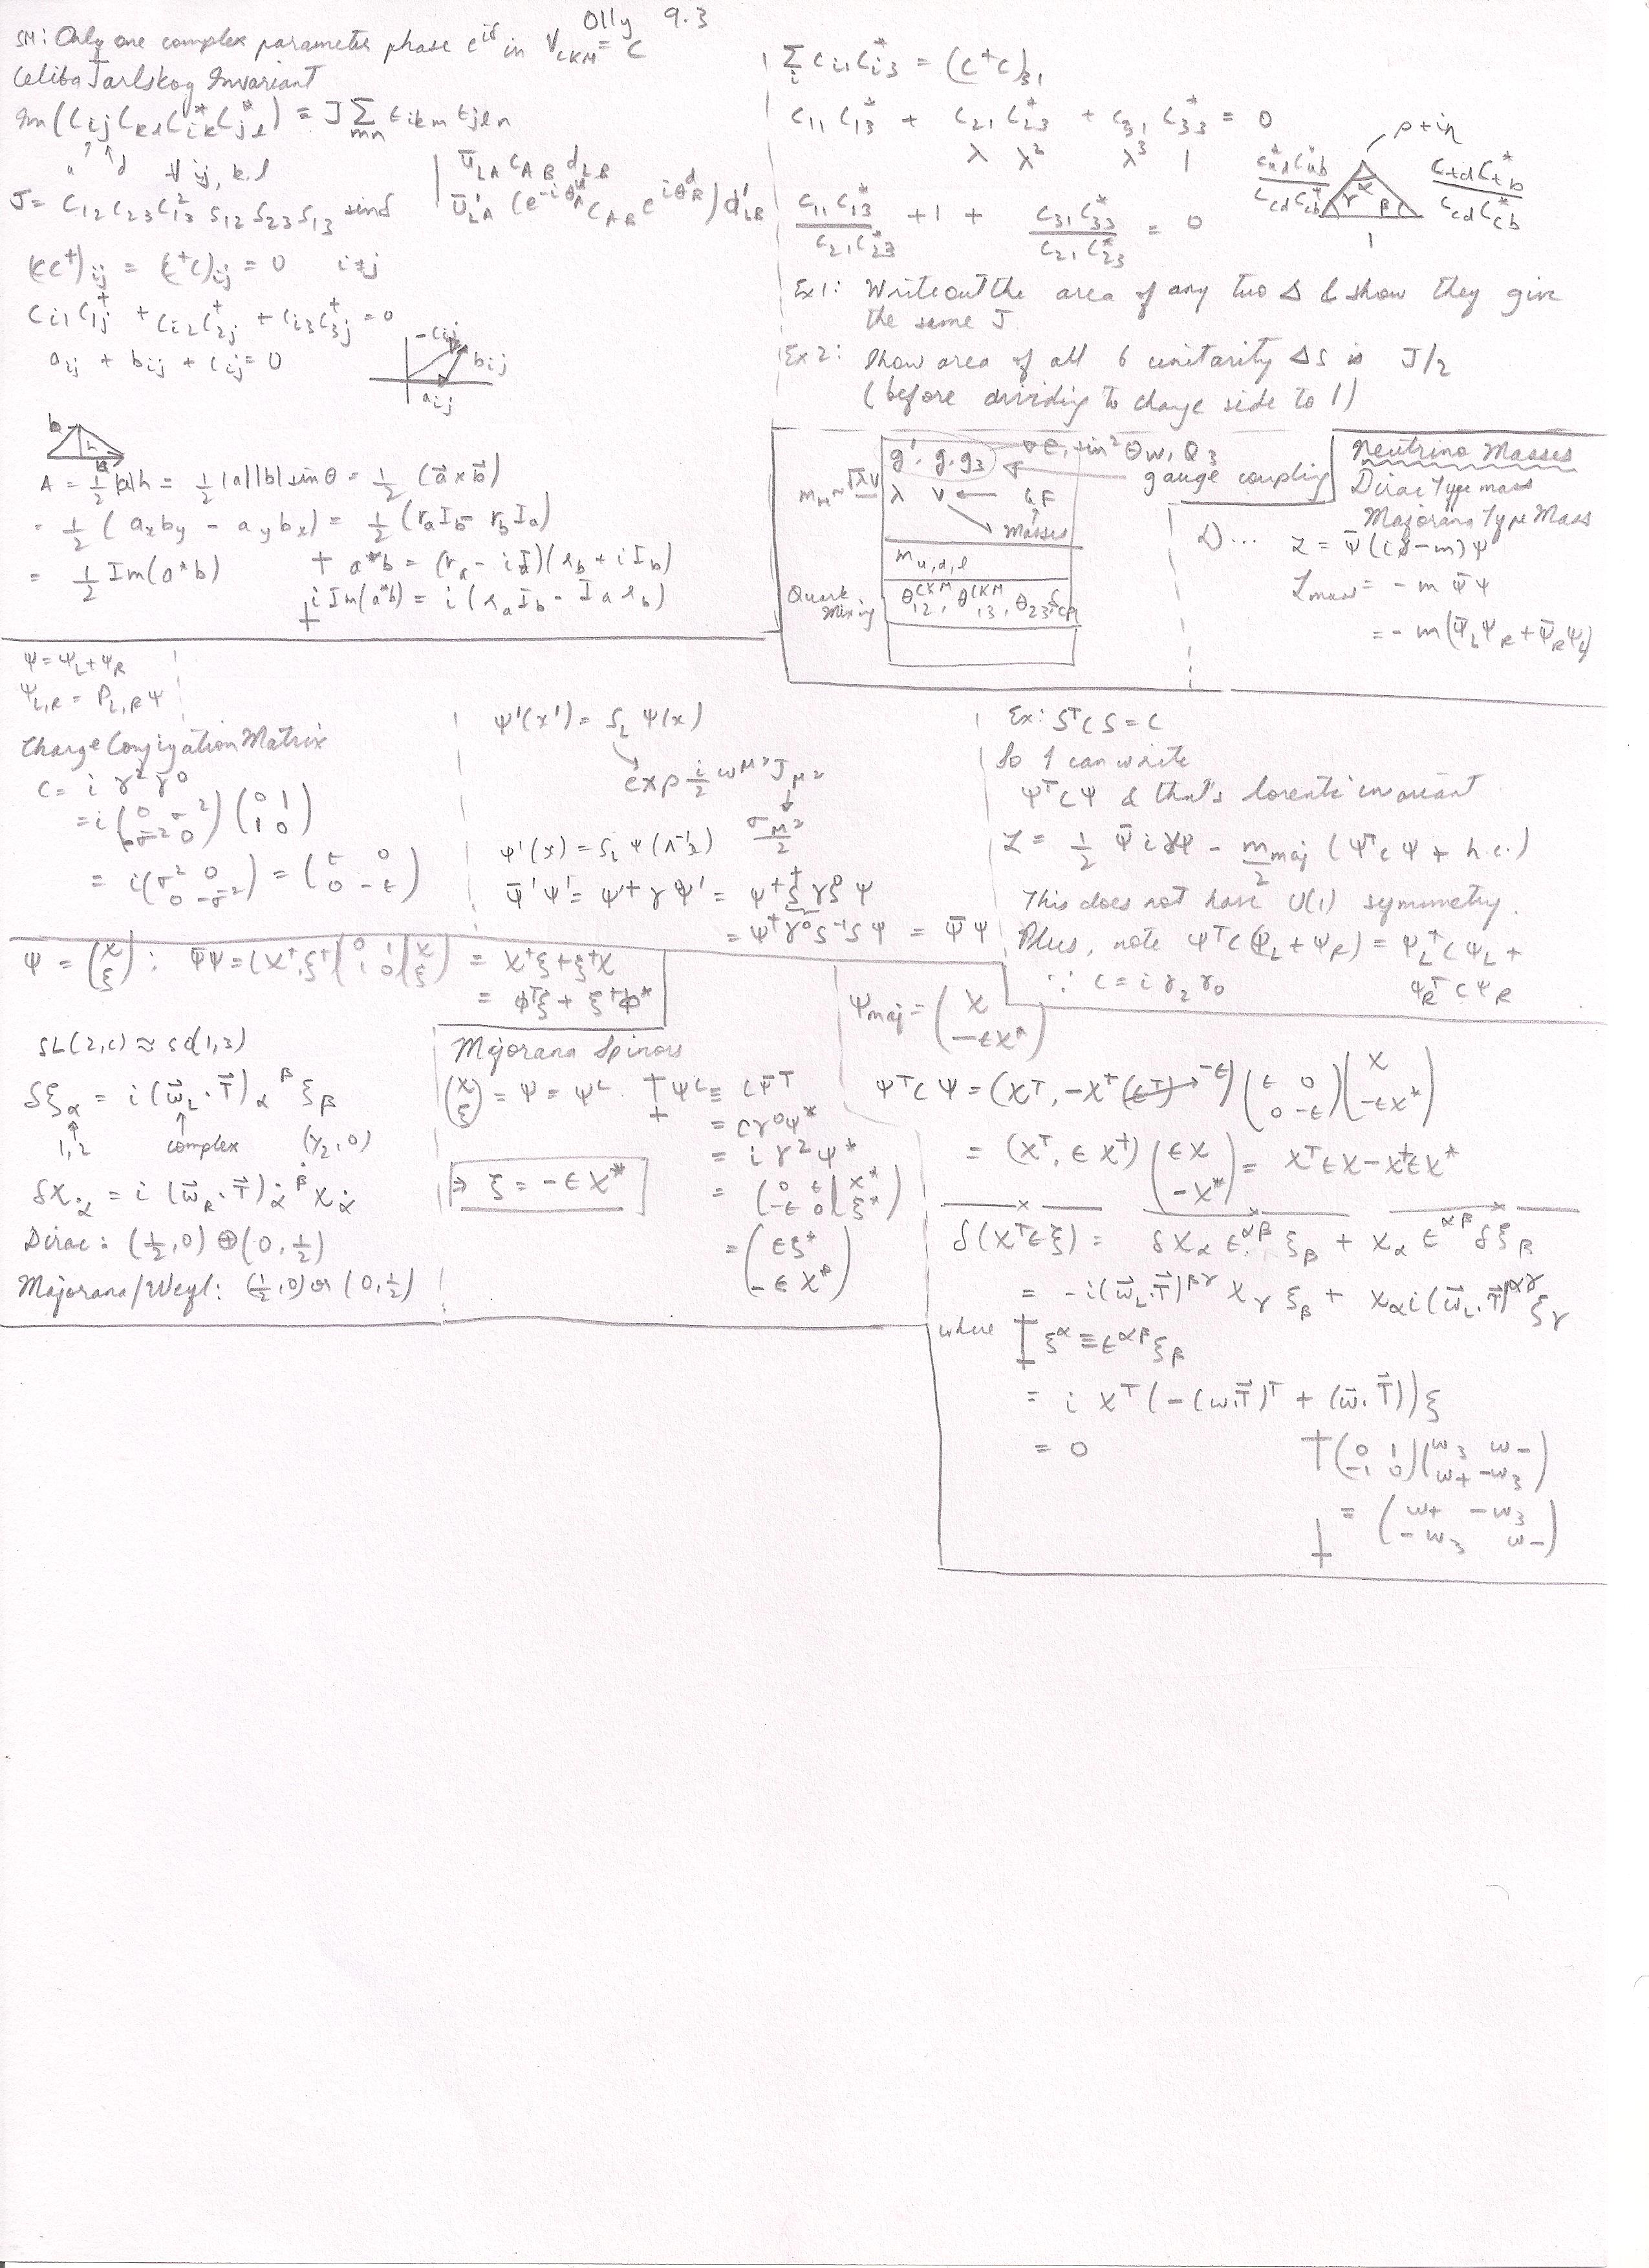 Olly 9.3
SM: Only one complex parameter phase e^{iδ} in V_{CKM} = C
Celiba Jarlskog Invariant
Im(C_{ij} C_{kl} C_{ik}^* C_{jl}^*) = J Σ_{mn} ε_{ikm} ε_{jln}
∀ ij, k,l
J = C_{12} C_{23} C_{13}^2 S_{12} S_{23} S_{13} sinδ
ū_{LA} C_{AB} d_{LB}
ū'_{LA} (e^{-iθ_A^u} C_{AB} e^{iθ_B^d}) d'_{LB}
(CC^†)_{ij} = (C^†C)_{ij} = 0 i≠j
C_{i1} C_{1j}^† + C_{i2} C_{2j}^† + C_{i3} C_{3j}^† = 0
a_{ij} + b_{ij} + c_{ij} = 0
-c_{ij} b_{ij} a_{ij}
b h a
A = 1/2 |a|h = 1/2 |a||b| sinθ = 1/2 (a⃗ × b⃗)
= 1/2 (a_x b_y - a_y b_x) = 1/2 (r_a I_b - r_b I_a)
= 1/2 Im(a*b) a*b = (r_a - iI)(r_b + iI_b)
i Im(a*b) = i(r_a I_b - I_a r_b)
Σ_i C_{i1} C_{i3}^* = (C^†C)_{31}
C_{11} C_{13}^* + C_{21} C_{23}^* + C_{31} C_{33}^* = 0
λ λ² λ³ 1
C_{11}C_{13}^*/C_{21}C_{23}^* + 1 + C_{31}C_{33}^*/C_{21}C_{23}^* = 0
ρ+iη
C_{ud}C_{ub}^*/C_{cd}C_{cb}^* α γ β C_{td}C_{tb}^*/C_{cd}C_{cb}^*
1
Ex1: Write out the area of any two Δ & show they give
the same J
Ex2: Show area of all 6 unitarity Δs is J/2
(before dividing to change side to 1)
g', g, g_3 e, sin²θ_W, Q_3
gauge coupling
m_H ~ √λ v λ v ← G_F
Masses
m_{u,d,l}
Quark Mixing θ_{12}^{CKM}, θ_{13}^{CKM}, θ_{23}, δ_{CP}
Neutrino Masses
Dirac Type mass
Majorana Type Mass
D... ℒ = ψ̄(i∂̸-m)ψ
ℒ_{mass} = -m ψ̄ψ
= -m(ψ̄_L ψ_R + ψ̄_R ψ_L)
ψ = ψ_L + ψ_R
ψ_{L,R} = P_{L,R} ψ
Charge Conjigation Matrix
C = i γ² γ⁰
= i (0 σ² ; σ̄² 0)(0 1 ; 1 0)
= i(σ² 0 ; 0 -σ²) = (ε 0 ; 0 -ε)
ψ'(x') = S_L ψ(x)
exp i/2 ω^{μν} J_{μν}
σ_{μν}/2
ψ'(x) = S_L ψ(Λ^{-1}x)
ψ̄'ψ' = ψ^† γ ψ' = ψ^† S^† γ⁰ S ψ
= ψ^† γ⁰ S^{-1} S ψ = ψ̄ψ
Ex: S^T C S = C
So I can write
ψ^T C ψ & that's lorentz invariant
ℒ = 1/2 ψ̄ i∂̸ψ - m_{maj}/2 (ψ^T C ψ + h.c.)
This does not have U(1) symmetry.
Plus, note ψ^T C(ψ_L + ψ_R) = ψ_L^T C ψ_L +
∵ C = i γ_2 γ_0 ψ_R^T C ψ_R
ψ = (χ ; ξ) : ψ̄ψ = (χ^†, ξ^†)(0 1 ; 1 0)(χ ; ξ) = χ^†ξ + ξ^†χ
= φ^Tξ + ξ^†φ*
SL(2,C) ≈ SO(1,3)
δξ_α = i(ω⃗_L·T⃗)_α^β ξ_β
1,2 complex (1/2,0)
δχ_{α̇} = i(ω⃗_R·T⃗)_{α̇}^{β̇} χ_{α̇}
Dirac: (1/2,0) ⊕ (0,1/2)
Majorana/Weyl: (1/2,0) or (0,1/2)
Majorana Spinors
(χ ; ξ) = ψ = ψ^c ψ^c ≡ Cψ̄^T
= Cγ⁰ψ*
= iγ²ψ*
⇒ ξ = -εχ*
= (0 ε ; -ε 0)(χ* ; ξ*)
= (εξ* ; -εχ*)
ψ_{maj} = (χ ; -εχ*)
ψ^T C ψ = (χ^T, -χ^†(ε^T)→-ε)(ε 0 ; 0 -ε)(χ ; -εχ*)
= (χ^T, εχ^†)(εχ ; -χ*) = χ^Tεχ - χ^†εχ*
δ(χ^Tεξ) = δχ_α ε^{αβ} ξ_β + χ_α ε^{αβ} δξ_β
= -i(ω⃗_L·T⃗)^{βγ} χ_γ ξ_β + χ_α i(ω⃗_L·T⃗)^{αγ} ξ_γ
where ξ^α ≡ ε^{αβ} ξ_β
= i χ^T(-(ω·T⃗)^T + (ω⃗·T⃗))ξ
= 0 (0 1 ; -1 0)(ω_3 ω_- ; ω_+ -ω_3)
= (ω_+ -ω_3 ; -ω_3 ω_-)